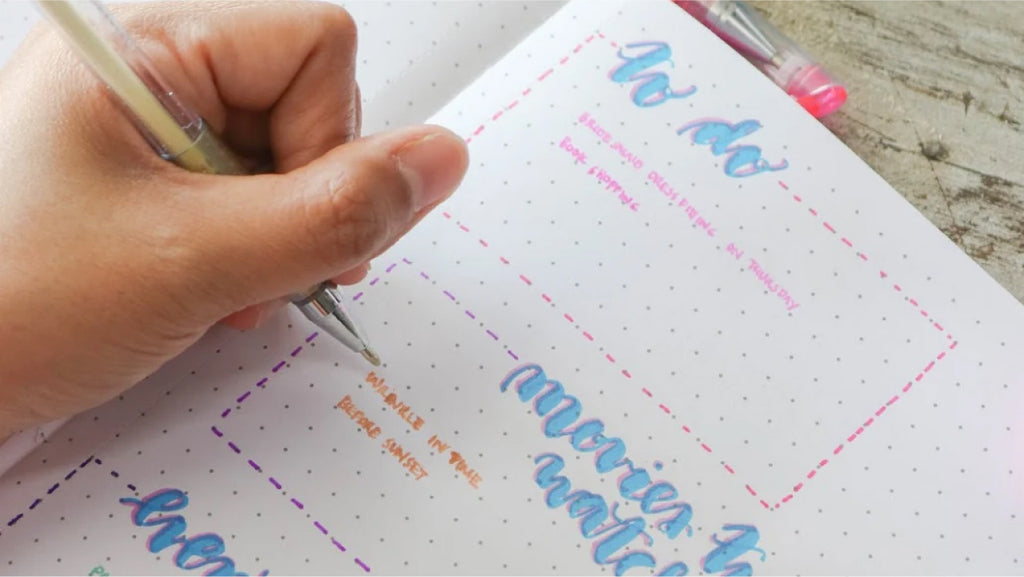 to do
BRIDESMAID DRESS FITTING ON THURSDAY
BOOK SHOPPING
movies to
watch
WILDVILLE IN TIME
BEFORE SUNSET